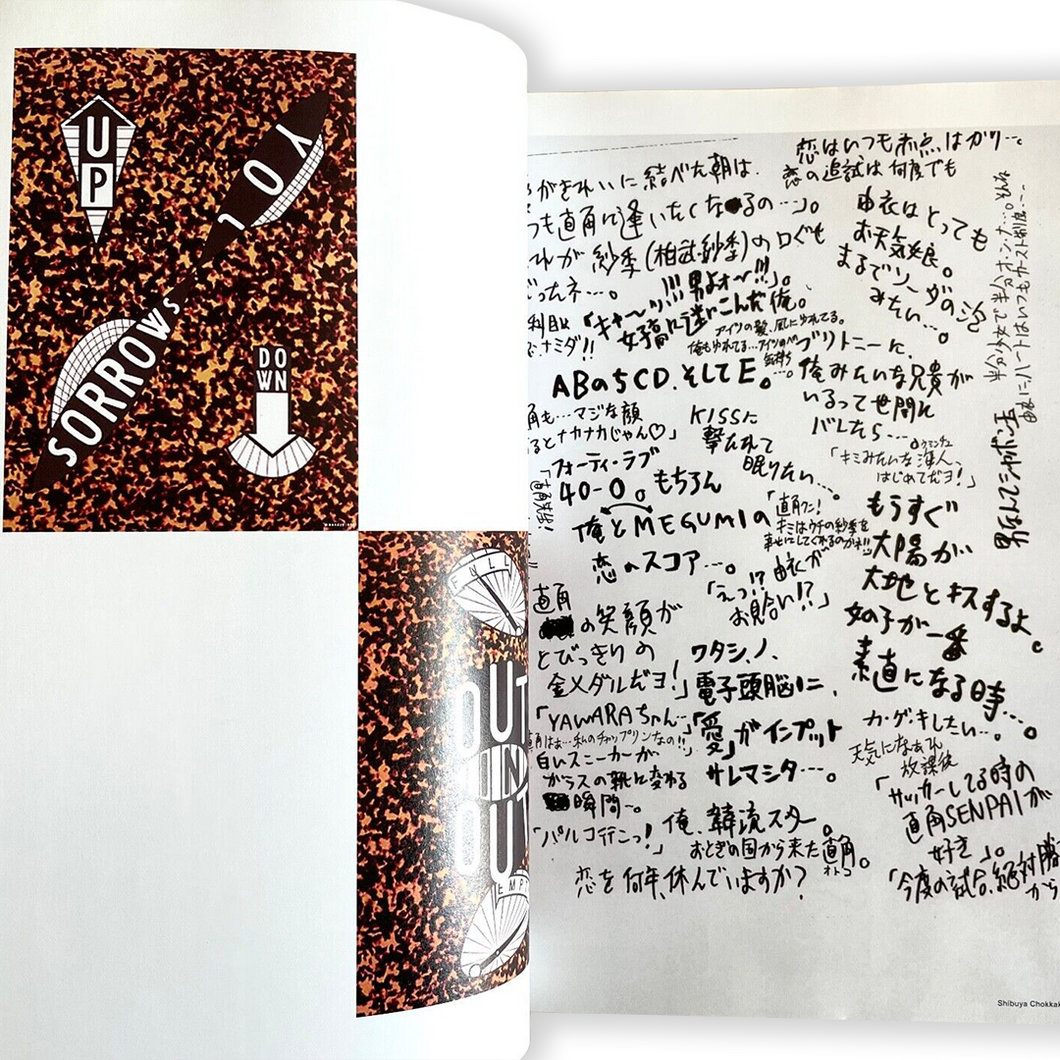 UP
JOY
SORROWS
DOWN
FULL
OUT
IN
OUT
EMP
恋はいつも赤点ばかり…。
恋の追試は何度でも
がきれいに結べた朝は、
つも直角に逢いたくなるの…」。
れが紗季(相武紗季)の口ぐせ
だったネ…。
「キャ〜ッ!!!男よォ〜!!!」。
女子高に迷いこんだ俺。
ナミダ!!
アイツの髪、風にゆれてる。
俺もゆれてる…アイツへの
気持ち…。
ABのちCD、そしてE。
角も…マジな顔
るとナカナカじゃん♡」
フォーティ・ラブ
40-0。もちろん
俺とMEGUMIの
恋のスコア…。
「直角先生!
KISSに
撃たれて
眠りたい…。
「直角クン!
キミはウチの紗季を
幸せにしてくれるのかネ!!
「えっ!?由衣が
お見合い!?」
直角
の笑顔が
とびっきりの
金メダルだヨ!」
「YAWARAちゃん…
直角はぁ…私のチャップリンなの!!」
白いスニーカーが
ガラスの靴に変わる
瞬間…。
「パルコ行こっ!」
ワタシ、ノ、
電子頭脳ニ、
「愛」がインプット
サレマシタ…。
俺、韓流スター。
おとぎの国から来た直角。
オトコ
恋を何年、休んでいますか?
由衣はとっても
お天気娘。
まるでソーダの泡
みたい…。
ブリトニーに、
俺みたいな兄貴が
いるって世間に
バレたら…。
ウマンチュ
「キミみたいな海人、
はじめてだヨ!」
もうすぐ
太陽が
大地とキスするよ。
女の子が一番
素直になる時…。
カ・ダ・キしたい…。
天気になあれ
放課後
「サッカーしてる時の
直角SENPAIが
好き」。
「今度の試合、絶対勝
から
半分少女で半分オンナ…。そんな
由衣にハートはいつもカースト制度…
男なんてシャボン玉
Shibuya Chokkak